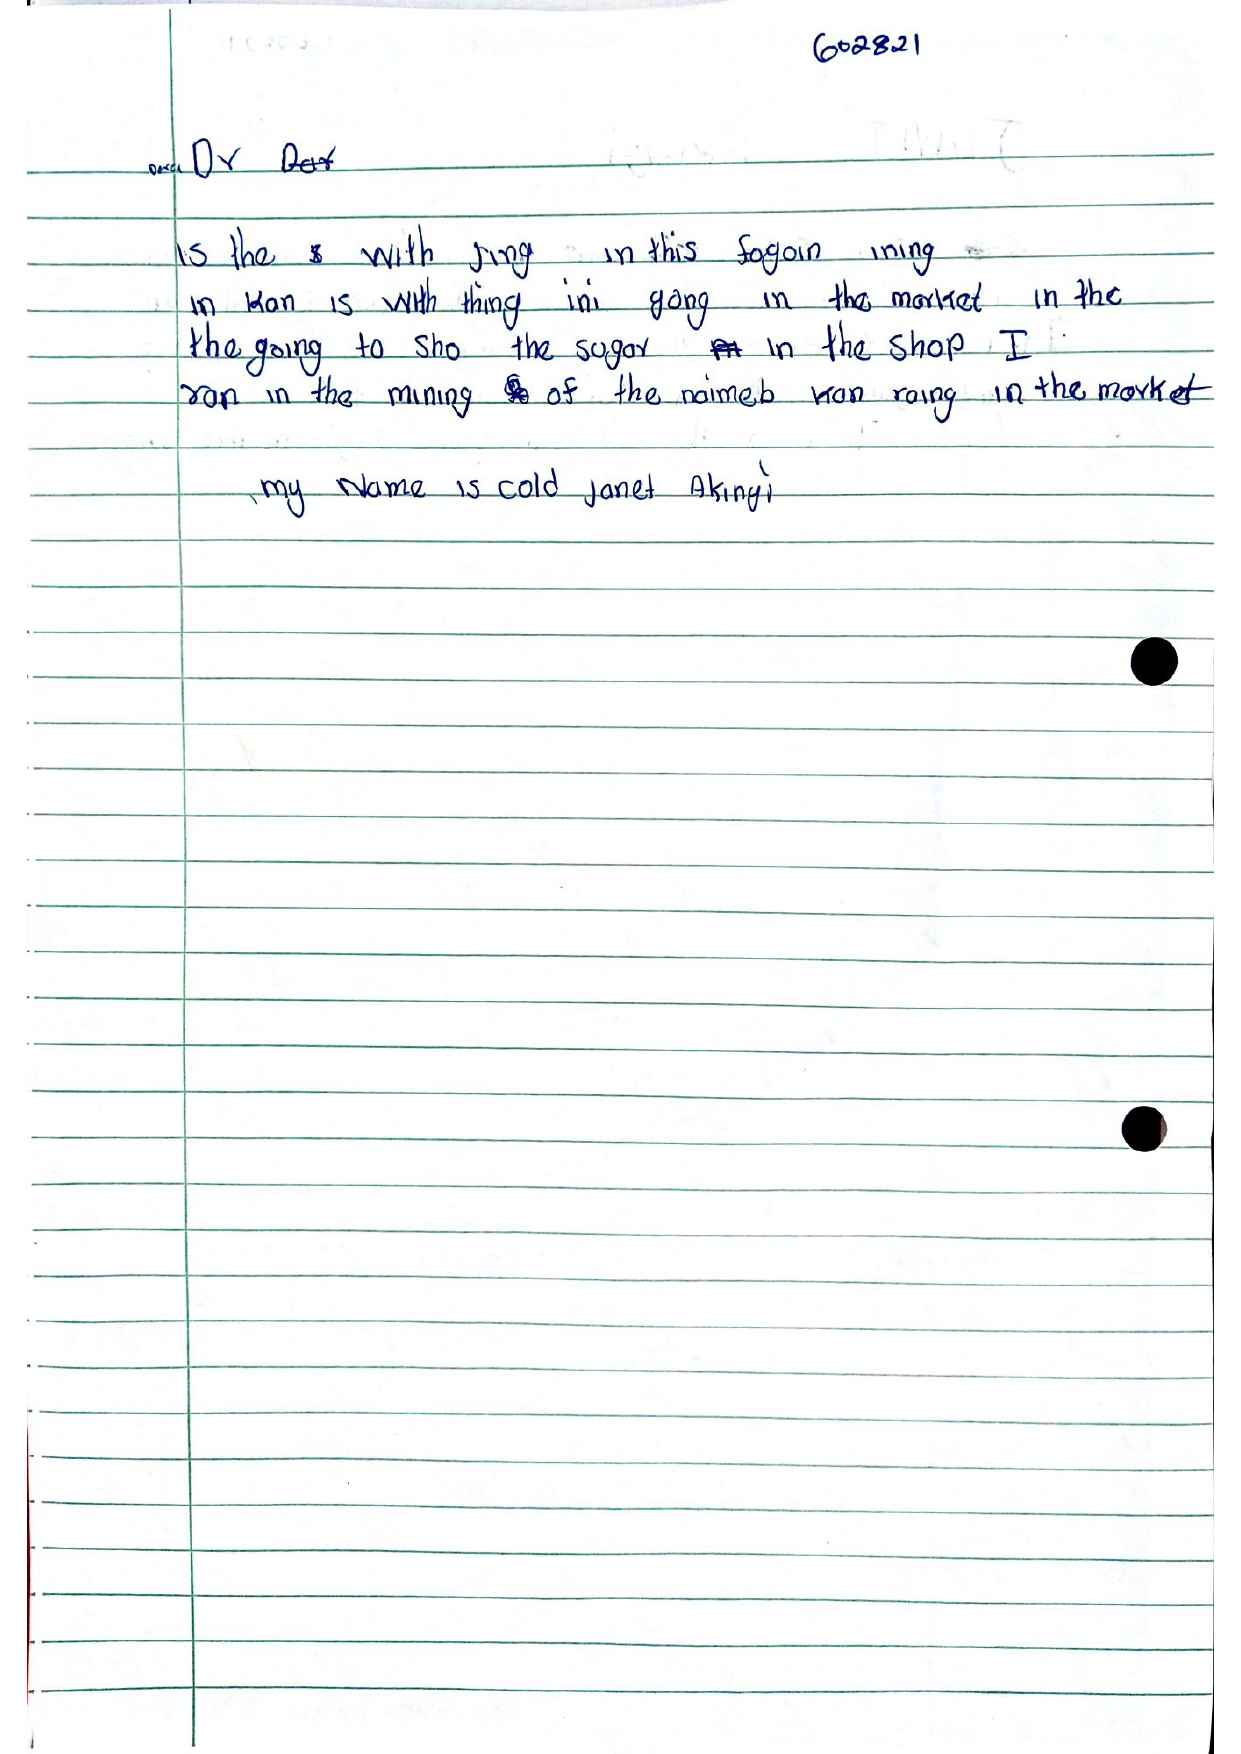 602821
Dr
is the with jing in this fogoin ining
in kan is with thing ini gong in the market in the
the going to sho the sugar in the shop I
ran in the mining of the naimeb kan raing in the market
my Name is cold Janet Akingi